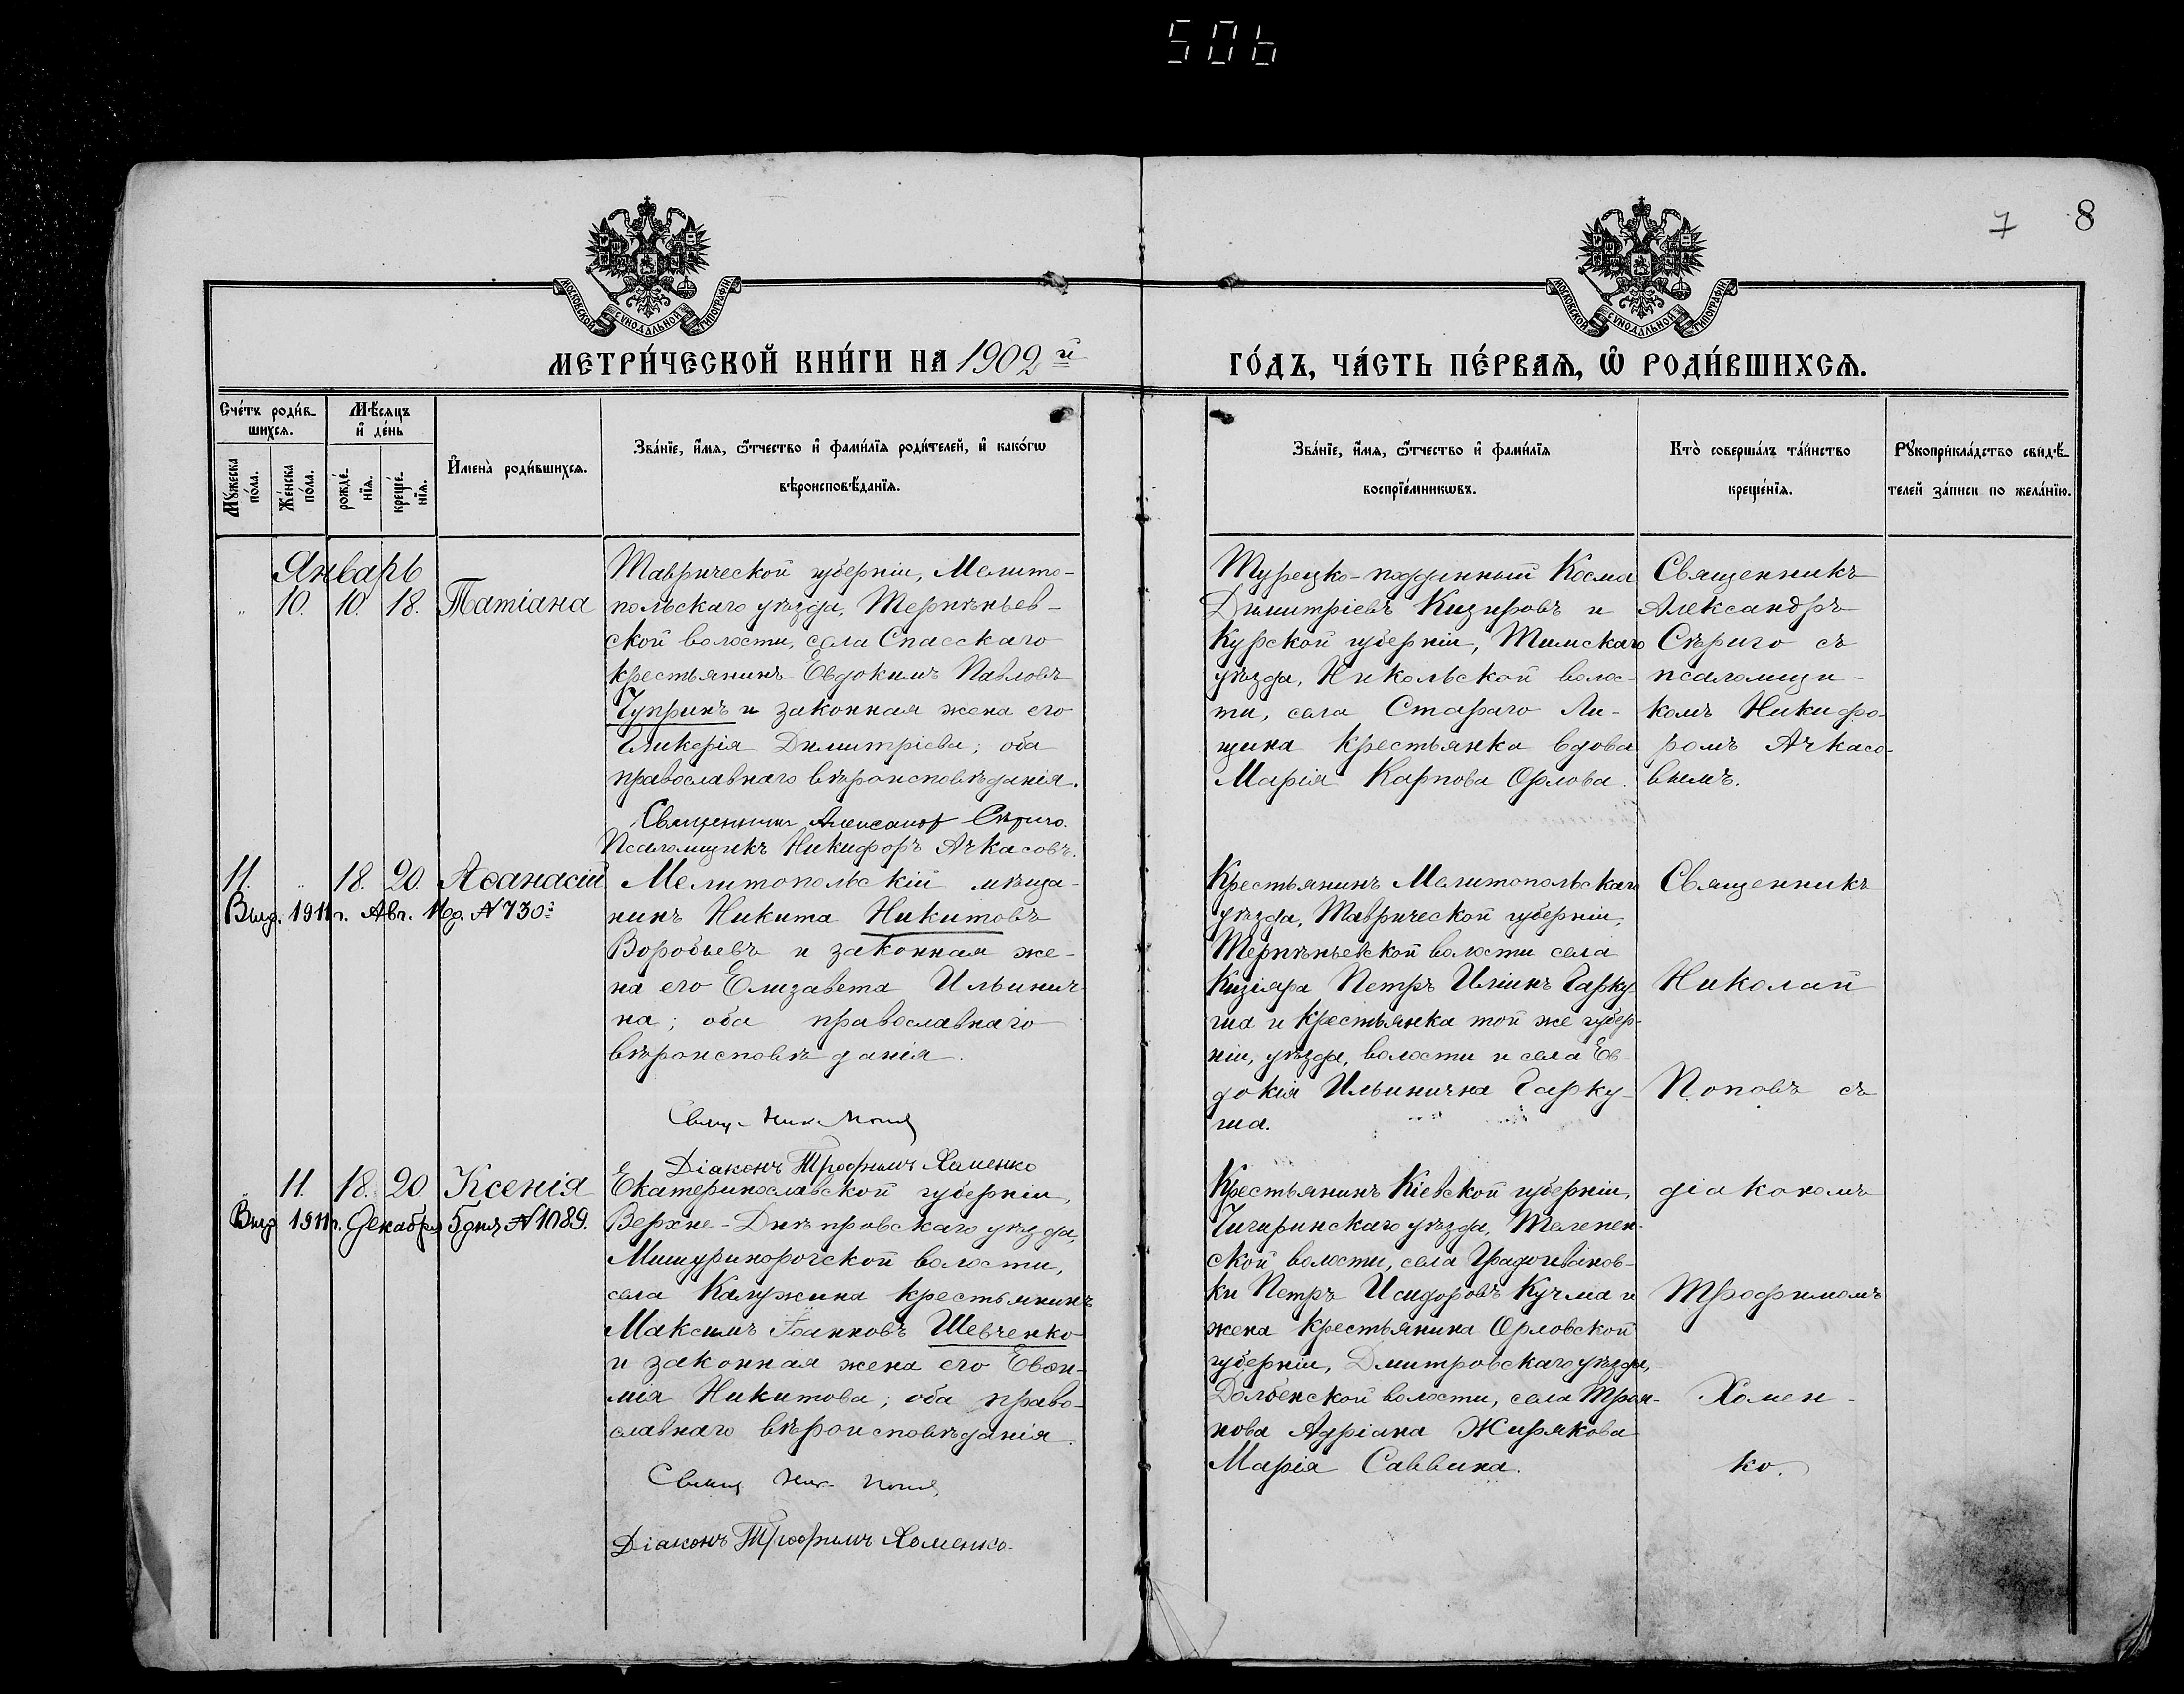 506
7 8
МОСКОВСКОЙ СУНОДАЛЬНОЙ ТИПОГРАФІИ
МОСКОВСКОЙ СУНОДАЛЬНОЙ ТИПОГРАФІИ
МЕТРИ́ЧЕСКОЙ КНИ́ГИ НА 1902 й
ГО́ДЪ, ЧА́СТЬ ПЕ́РВАѦ, Ѡ РОДИ́ВШИХСѦ.
Сче́тъ роди́в-
шихсѧ.
Мꙋ́жеска по́ла.
Же́нска по́ла.
Мѣ́сѧцъ
и҆ де́нь
рожде́-
нїѧ.
креще́-
нїѧ.
И҆мена̀ роди́вшихсѧ.
Зва́нїе, и҆́мѧ, ѻ҆́тчество и҆ фами́лїѧ роди́телей, и҆ како́гѡ
вѣроисповѣ́данїѧ.
Зва́нїе, и҆́мѧ, ѻ҆́тчество и҆ фами́лїѧ
воспрїе́мникѡвъ.
Кто̀ соверша́лъ та́инство
креще́нїѧ.
Рꙋкоприкла́дство свидѣ́-
телей за́писи по жела́нїю.
Январь
" 10. 10. 18. Татіана
Таврической губерніи, Мелито-
польскаго уѣзда, Терпѣньев-
ской волости, села Спасскаго
крестьянинъ Евдокимъ Павловъ
Чупринъ и законная жена его
Гликерія Димитріева; оба
православнаго вѣроисповѣданія.
Священникъ Александръ Сѣриго.
Псаломщикъ Никифоръ Ачкасовъ.
Турецко-подданный Косма
Димитріевъ Кизировъ и
Курской губерніи, Тимскаго
уѣзда, Никольской волос-
ти, села Стараго Ли-
щина крестьянка вдова
Марія Карпова Орлова.
Священникъ
Александръ
Сѣриго съ
псаломщи-
комъ Никифо-
ромъ Ачкасо-
вымъ.
11. " 18. 20. Аѳанасій
Выд. 1911 г. Авг. 16 д. № 730
Мелитопольскій мѣща-
нинъ Никита Никитовъ
Воробьевъ и законная же-
на его Елизавета Ильинич-
на; оба православнаго
вѣроисповѣданія.
Свящ. Ник. Поповъ
Діаконъ Трофимъ Хоменко
Крестьянинъ Мелитопольскаго
уѣзда, Таврической губерніи,
Терпѣньевской волости села
Кизіяра Петръ Иліинъ Гарку-
ша и крестьянка той же губер-
ніи, уѣзда, волости и села Ев-
докія Ильинична Гарку-
ша.
Священникъ
Николай
Поповъ съ
" 11. 18. 20. Ксенія
Выд. 1911 г. Декабря 5 дня № 1089.
Екатеринославской губерніи,
Верхне-Днѣпровскаго уѣзда,
Мишуринорогской волости,
села Калужина крестьянинъ
Максимъ Іоанновъ Шевченко
и законная жена его Евѳи-
мія Никитова; оба право-
славнаго вѣроисповѣданія.
Свящ. Ник. Поповъ
Діаконъ Трофимъ Хоменко.
Крестьянинъ Кіевской губерніи,
Чигиринскаго уѣзда, Телепен-
ской волости, села Ивановки
Петръ Исидоровъ Кучма и
жена крестьянина Орловской
губерніи, Дмитровскаго уѣзда,
Долбенской волости, села Троя-
нова Адріана Жирякова
Марія Саввина.
діакономъ
Трофимомъ
Хомен-
ко.